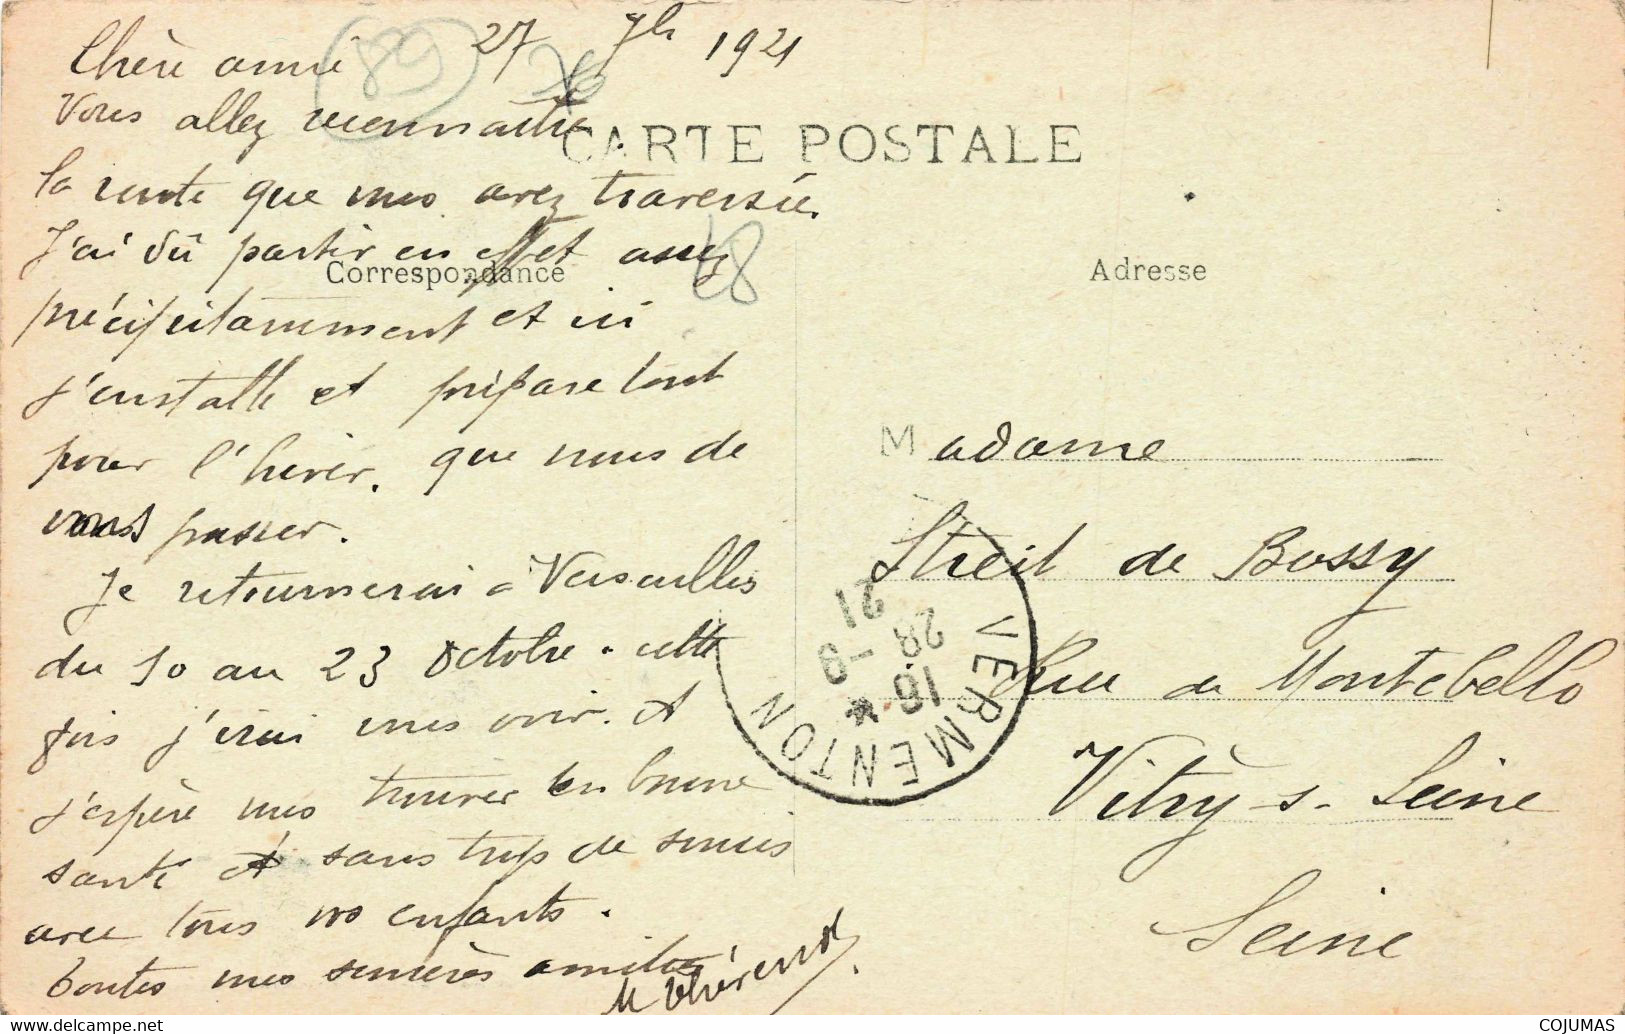 27 7bre 1921
Chère amie
Vous allez reconnaître
la route que vous avez traversée.
J'ai dû partir en effet assez
précipitamment et ici
j'installe et prépare tout
pour l'hiver. que nous devons
passer.
Je retournerai à Versailles
du 10 au 23 Octobre. cette
fois j'irai vous voir. et
j'espère vous trouver en bonne
santé et sans trop de soucis
avec tous vos enfants.
toutes mes sincères amitiés
89
28
CARTE POSTALE
Correspondance
Adresse
Madame
Streit de Bossy
Rue de Montebello
Vitry-s-Seine
Seine
VERMENTON
16 *
28 -9
21
COJUMAS